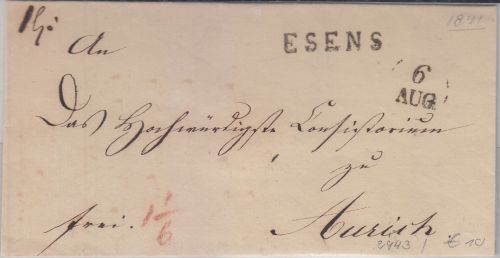 1841
ESENS
An
6
AUG
Das Hochwürdigste Consistorium
zu
frei. 1 1/6
Aurich.
2943 / € 10